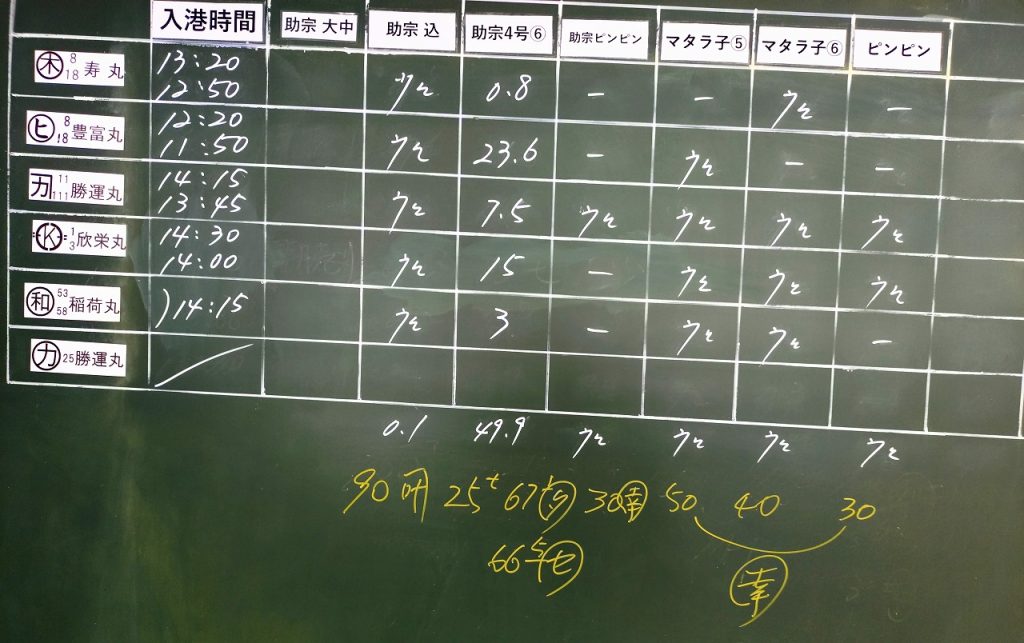 入港時間 助宗 大中 助宗 込 助宗4号⑥ 助宗ピンピン マタラ子⑤ マタラ子⑥ ピンピン
木 8 18 寿丸 13:20 12:50 ウろ 0.8 ー ー ウろ ー
ヒ 8 18 豊富丸 12:20 11:50 ウろ 23.6 ー ウろ ー ー
カ 11 111 勝運丸 14:15 13:45 ウろ 7.5 ウろ ウろ ウろ ウろ
K 1 3 欣栄丸 14:30 14:00 ウろ 15 ー ウろ ウろ ウろ
和 53 58 稲荷丸 )14:15 ウろ 3 ー ウろ ウろ ー
カ 25 勝運丸
0.1 49.9 ウろ ウろ ウろ ウろ
90 25t 67 30 幸 50 40 30
66
幸